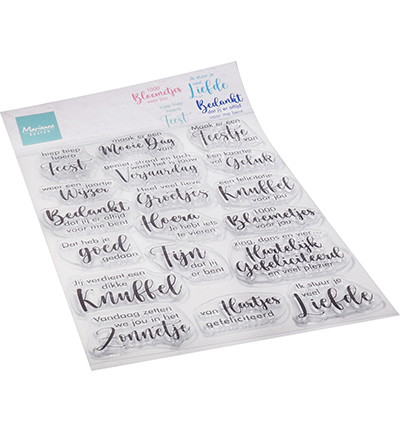 Marianne
DESIGN
1000
Bloemetjes
voor jou
Ik stuur je
veel
Liefde
hiep hiep
hoera
Feest
Bedankt
dat jij er altijd
voor me bent
hiep hiep
hoera
Feest
maak er een
Mooie Dag
van
Maak er een
Feestje
van
weer een jaartje
Wijzer
geniet, straal en lach
want het is jouw
Verjaardag
Een kaartje
vol
Geluk
Bedankt
dat jij er altijd
voor me bent
Heel veel lieve
Groetjes
een felicitatie
Knuffel
voor jou
Hoera
Je hebt iets
te vieren
1000
Bloemetjes
voor jou
Dat heb je
goed
gedaan
Fijn
dat jij
er bent
zing, dans en vier
Hartelijk
Gefeliciteerd
en veel plezier
Jij verdient een
dikke
Knuffel
Vandaag zetten
we jou in het
Zonnetje
van
Hartjes
gefeliciteerd
Ik stuur je
veel
Liefde